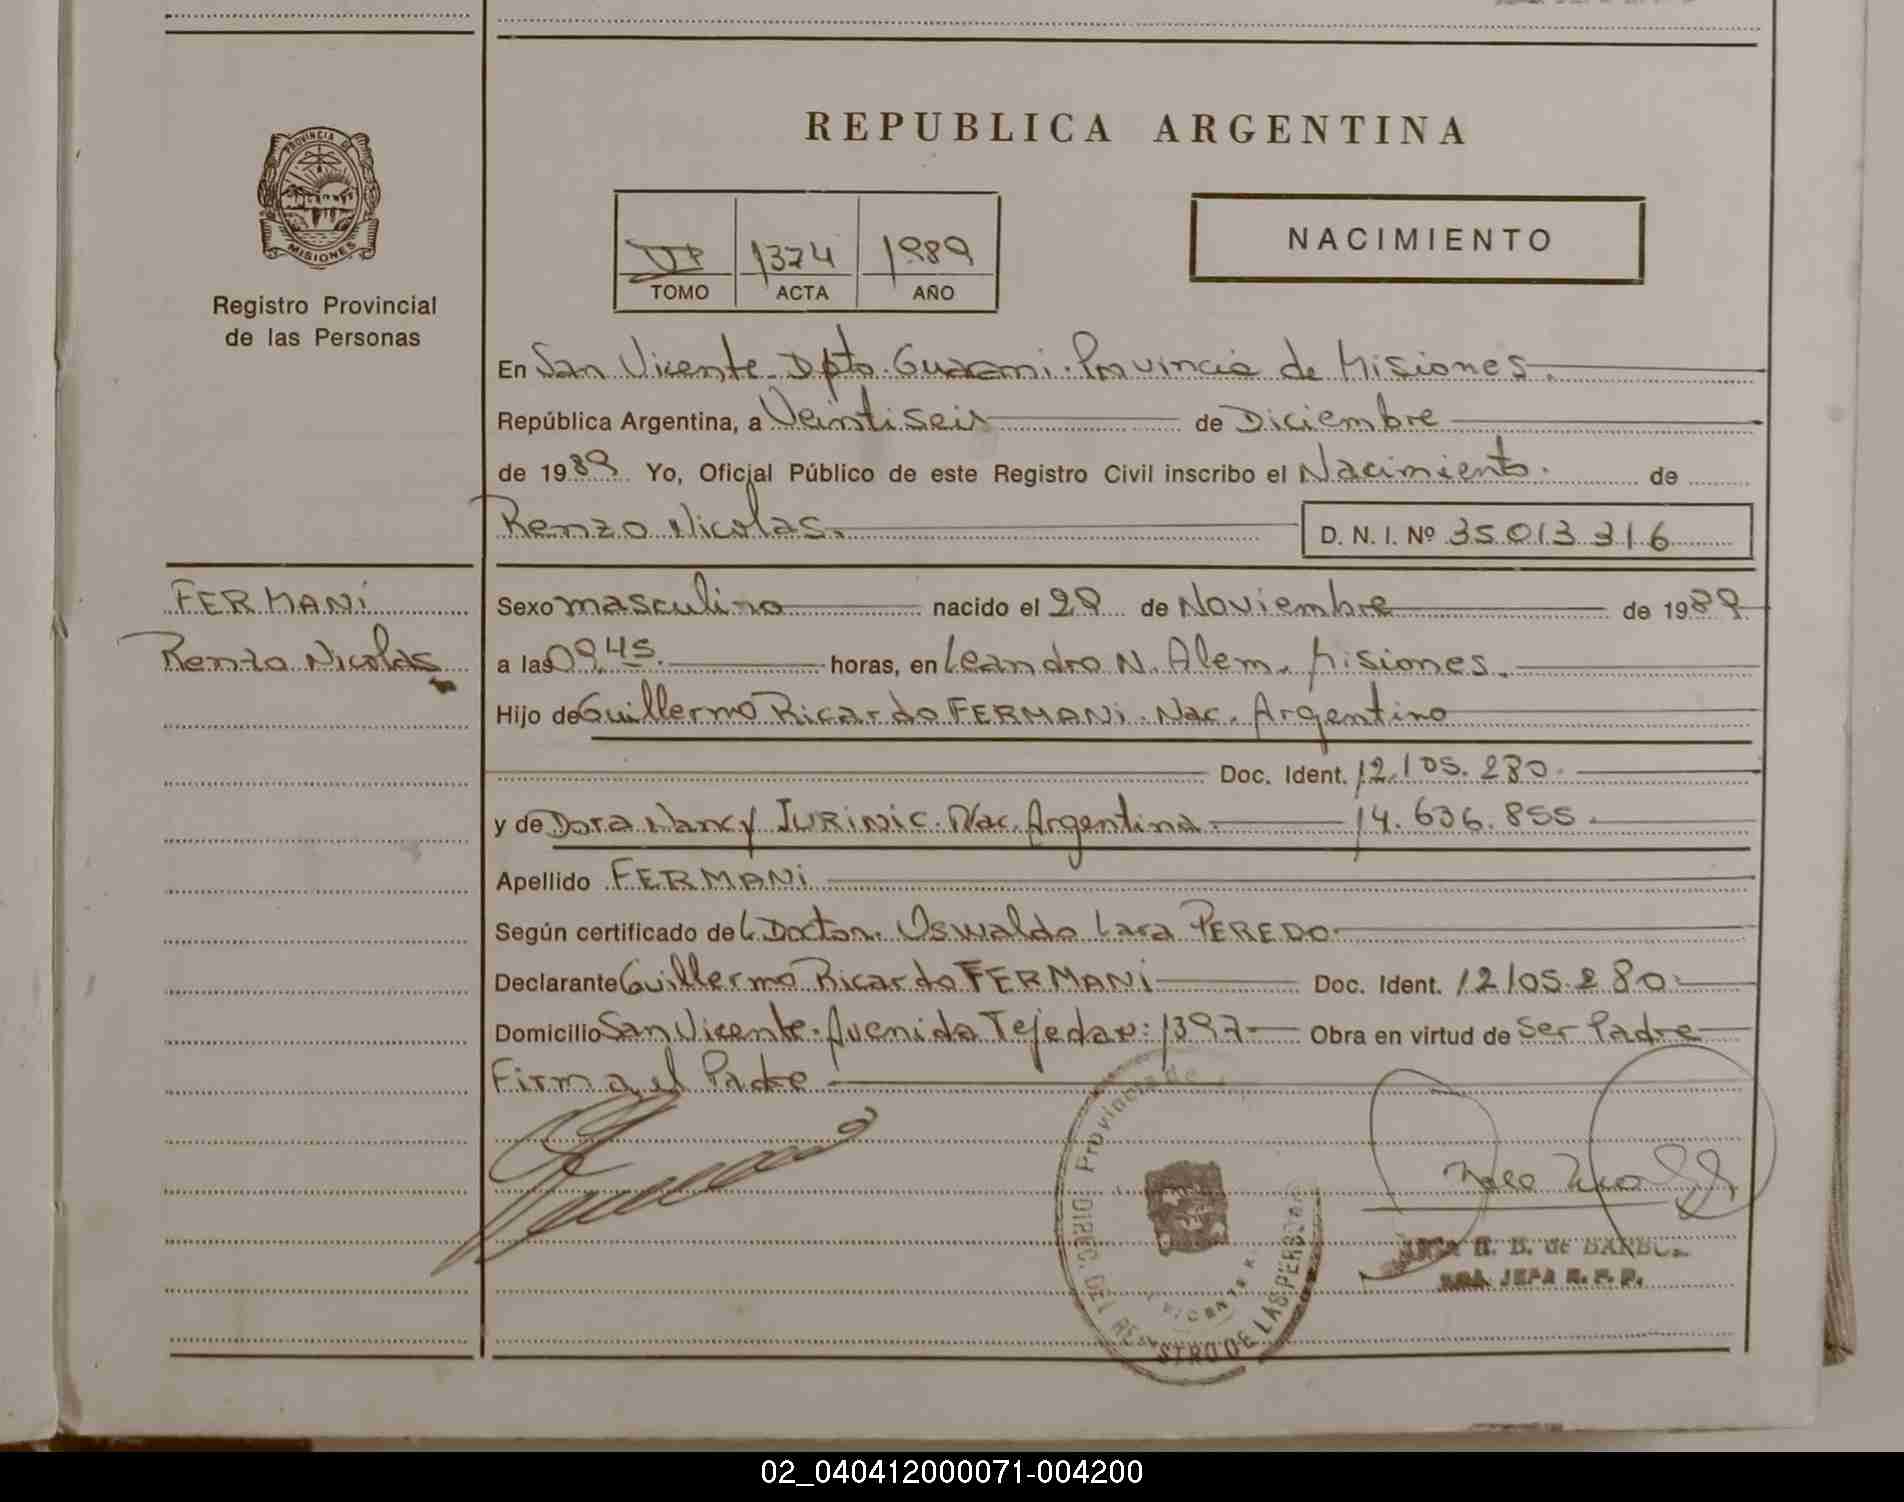 REPUBLICA ARGENTINA
PROVINCIA DE
MISIONES
Registro Provincial
de las Personas
1374 1989
TOMO ACTA AÑO
NACIMIENTO
En San Vicente Dpto. Guarani. Provincia de Misiones.
República Argentina, a Veintiseis de Diciembre
de 1989 Yo, Oficial Público de este Registro Civil inscribo el Nacimiento. de
Renzo Nicolas. D. N. I. Nº 35 013 316
FERMANi
Renzo Nicolas
Sexo masculino nacido el 29 de Noviembre de 1989
a las 09,45. horas, en Leandro N. Alem. Misiones.
Hijo de Guillermo Ricardo FERMANi. Nac. Argentino
Doc. Ident. 12.105.280.
y de Dora Nancy JURINIC. Nac. Argentina. 14.636.855.
Apellido FERMANi
Según certificado del Doctor. Oswaldo Lara PEREDO.
Declarante Guillermo Ricardo FERMANi Doc. Ident. 12.105.280.
Domicilio San Vicente. Avenida Tejedar: 1397 Obra en virtud de Ser Padre
Firma el Padre
Provincia de
DIREC. DEL REGISTRO DE LAS PERSONAS
R. B. de BARBO
JEFA R. P. P.
02_040412000071-004200